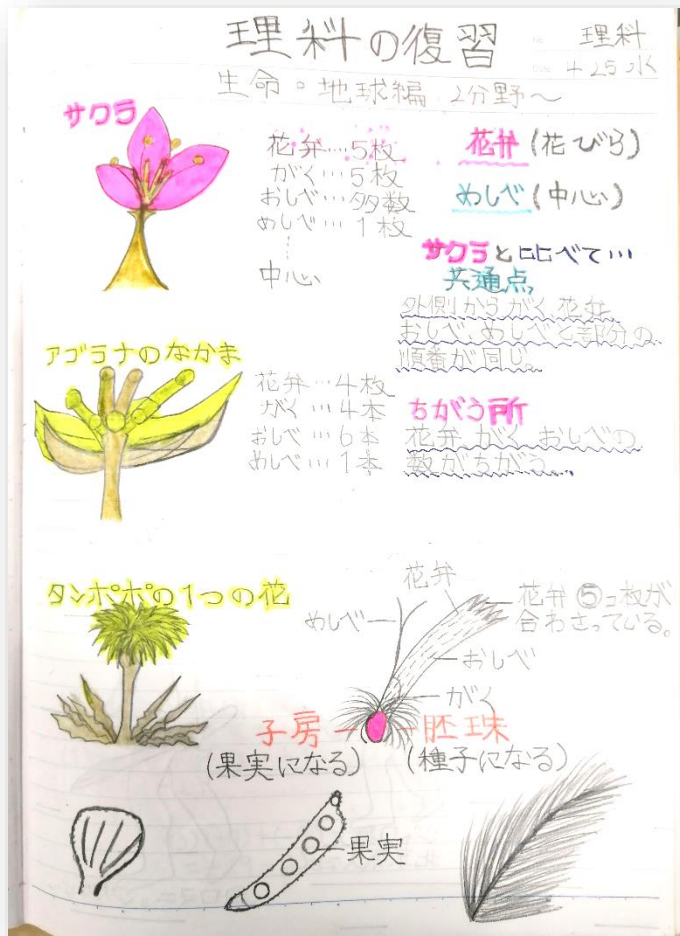 理科の復習
理科
4 25 水
生命・地球編 2分野～
サクラ
花弁…5枚
がく…5枚
おしべ…多数
めしべ…1枚
中心
花弁(花びら)
めしべ(中心)
サクラと比べて…
共通点
外側からがく、花弁、
おしべ、めしべと部分の
順番が同じ。
アブラナのなかま
花弁…4枚
がく…4本
おしべ…6本
めしべ…1本
ちがう所
花弁、がく、おしべの
数がちがう。
タンポポの1つの花
花弁
めしべ
花弁⑤コ枚が
合わさっている。
おしべ
がく
子房
胚珠
(果実になる)
(種子になる)
果実